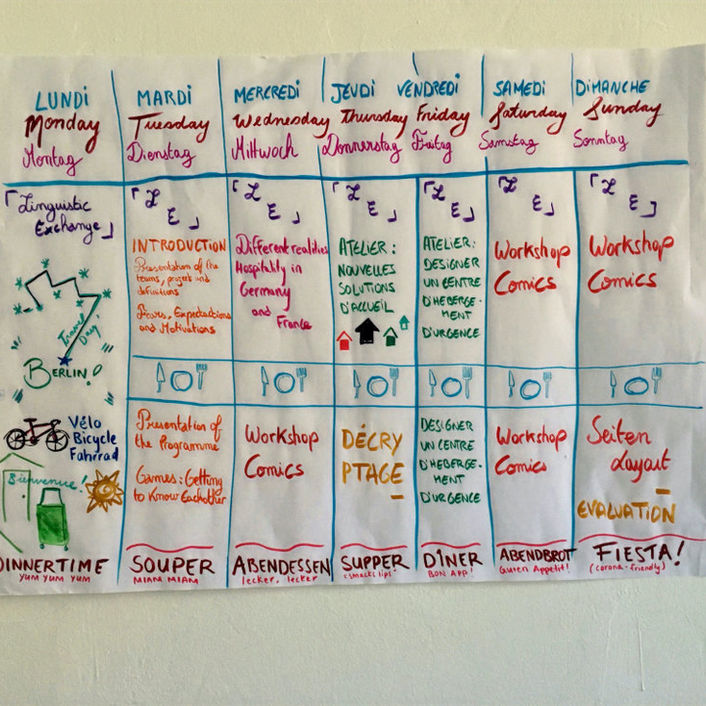 LUNDI
Monday
Montag
「Linguistic
Exchange」
Travel
Day!
BERLIN!
Vélo
Bicycle
Fahrrad
Bienvenue!
DINNERTIME
YUM YUM YUM
MARDI
Tuesday
Dienstag
「L
E」
INTRODUCTION
Presentation of the
teams, project and
definitions
Fears, Expectations
and Motivations
Presentation of
the Programme
Games: Getting
to Know Eachother
SOUPER
MIAM MIAM
MERCREDI
Wednesday
Mittwoch
「L
E」
Different realities
Hospitality in
Germany
and France
Workshop
Comics
ABENDESSEN
lecker, lecker
JEUDI
Thursday
Donnerstag
「L
E」
ATELIER:
NOUVELLES
SOLUTIONS
D'ACCUEIL
DÉCRY
PTAGE
SUPPER
(smacks lips)
VENDREDI
Friday
Freitag
「L
E」
ATELIER:
DESIGNER
UN CENTRE
D'HEBERGE-
MENT
D'URGENCE
DESIGNER
UN CENTRE
D'HEBERGE-
MENT
D'URGENCE
DÎNER
BON APP!
SAMEDI
Saturday
Samstag
「L
E」
Workshop
Comics
Workshop
Comics
ABENDBROT
Guten Appetit!
DIMANCHE
Sunday
Sonntag
「L
E」
Workshop
Comics
Seiten
Layout
EVALUATION
FIESTA!
(corona-friendly)